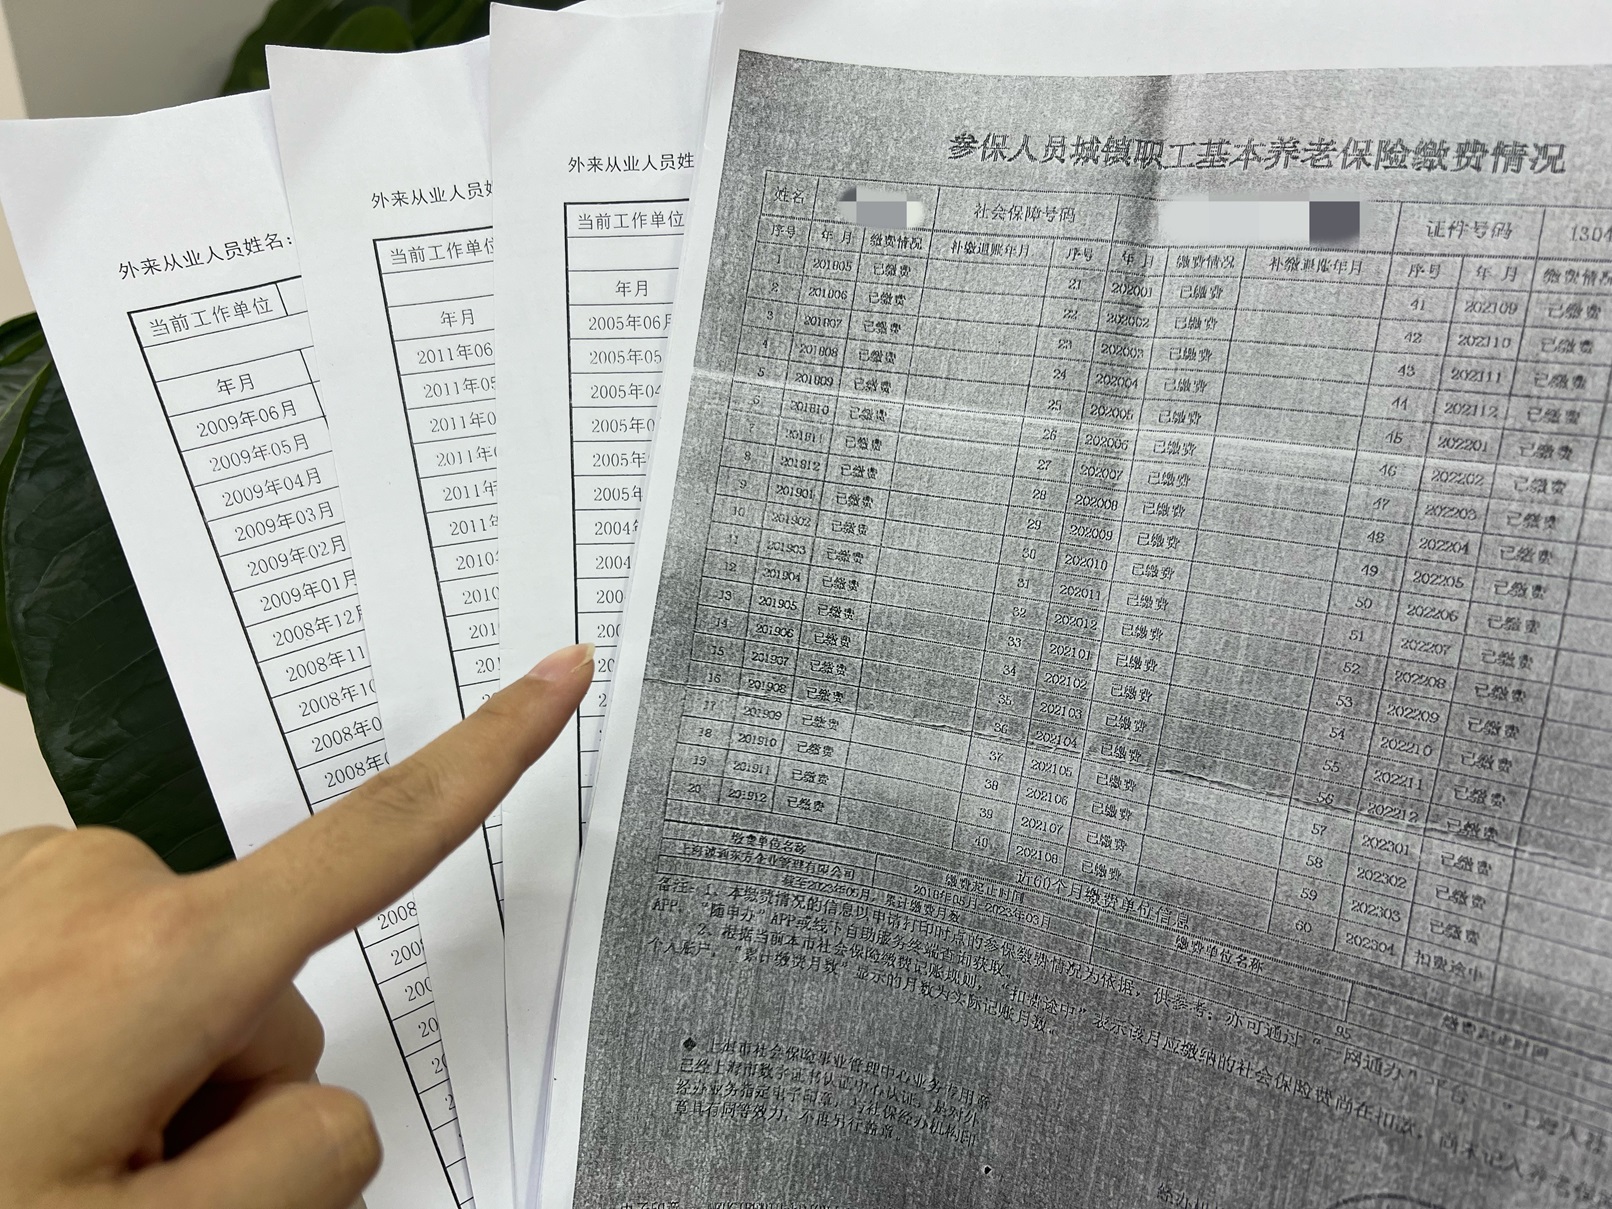 外来从业人员姓名:
当前工作单位
年月
2009年06月
2009年05月
2009年04月
2009年03月
2009年02月
2009年01月
2008年12月
2008年11
2008年10
2008年0
2008年
2008
外来从业人员姓
当前工作单位
年月
2011年06
2011年05
2011年0
2011年
2011年
2011年
2010
2010
201
外来从业人员姓
当前工作单位
年月
2005年06月
2005年05
2005年04
2005年0
2005年
2005年
2004年
2004
200
参保人员城镇职工基本养老保险缴费情况
姓名 社会保障号码 证件号码 1304
序号 年 月 缴费情况 补缴退账年月 序号 年 月 缴费情况 补缴退账年月 序号 年 月 缴费情况
1 201805 已缴费 21 202001 已缴费 41 202109 已缴费
2 201806 已缴费 22 202002 已缴费 42 202110 已缴费
3 201807 已缴费 23 202003 已缴费 43 202111 已缴费
4 201808 已缴费 24 202004 已缴费 44 202112 已缴费
5 201809 已缴费 25 202005 已缴费 45 202201 已缴费
6 201810 已缴费 26 202006 已缴费 46 202202 已缴费
7 201811 已缴费 27 202007 已缴费 47 202203 已缴费
8 201812 已缴费 28 202008 已缴费 48 202204 已缴费
9 201901 已缴费 29 202009 已缴费 49 202205 已缴费
10 201902 已缴费 30 202010 已缴费 50 202206 已缴费
11 201903 已缴费 31 202011 已缴费 51 202207 已缴费
12 201904 已缴费 32 202012 已缴费 52 202208 已缴费
13 201905 已缴费 33 202101 已缴费 53 202209 已缴费
14 201906 已缴费 34 202102 已缴费 54 202210 已缴费
15 201907 已缴费 35 202103 已缴费 55 202211 已缴费
16 201908 已缴费 36 202104 已缴费 56 202212 已缴费
17 201909 已缴费 37 202105 已缴费 57 202301 已缴费
18 201910 已缴费 38 202106 已缴费 58 202302 已缴费
19 201911 已缴费 39 202107 已缴费 59 202303 已缴费
20 201912 已缴费 40 202108 已缴费 60 202304 扣费途中
近60个月缴费单位信息
缴费单位名称 缴费起止时间 缴费单位名称 缴费起止时间
企业管理有限公司 2018年05月-2023年03月
截至2023年05月，累计缴费月数 95
备注：1、本缴费情况的信息以申请打印时点的参保缴费情况为依据，供参考；亦可通过“一网通办”平台、“上海人社”
APP、“随申办”APP或线下自助服务终端查询获取。
2、根据当前本市社会保险缴费记账规则，“扣费途中”表示该月应缴纳的社会保险费尚在扣款，尚未记入养老保险
个人账户。“累计缴费月数”显示的月数为实际记账月数。
◆ 上海市社会保险事业管理中心业务专用章
已经上海市数字证书认证中心认证，是对外
经办业务指定电子印章，与社保经办机构印
章具有同等效力，不再另行盖章。